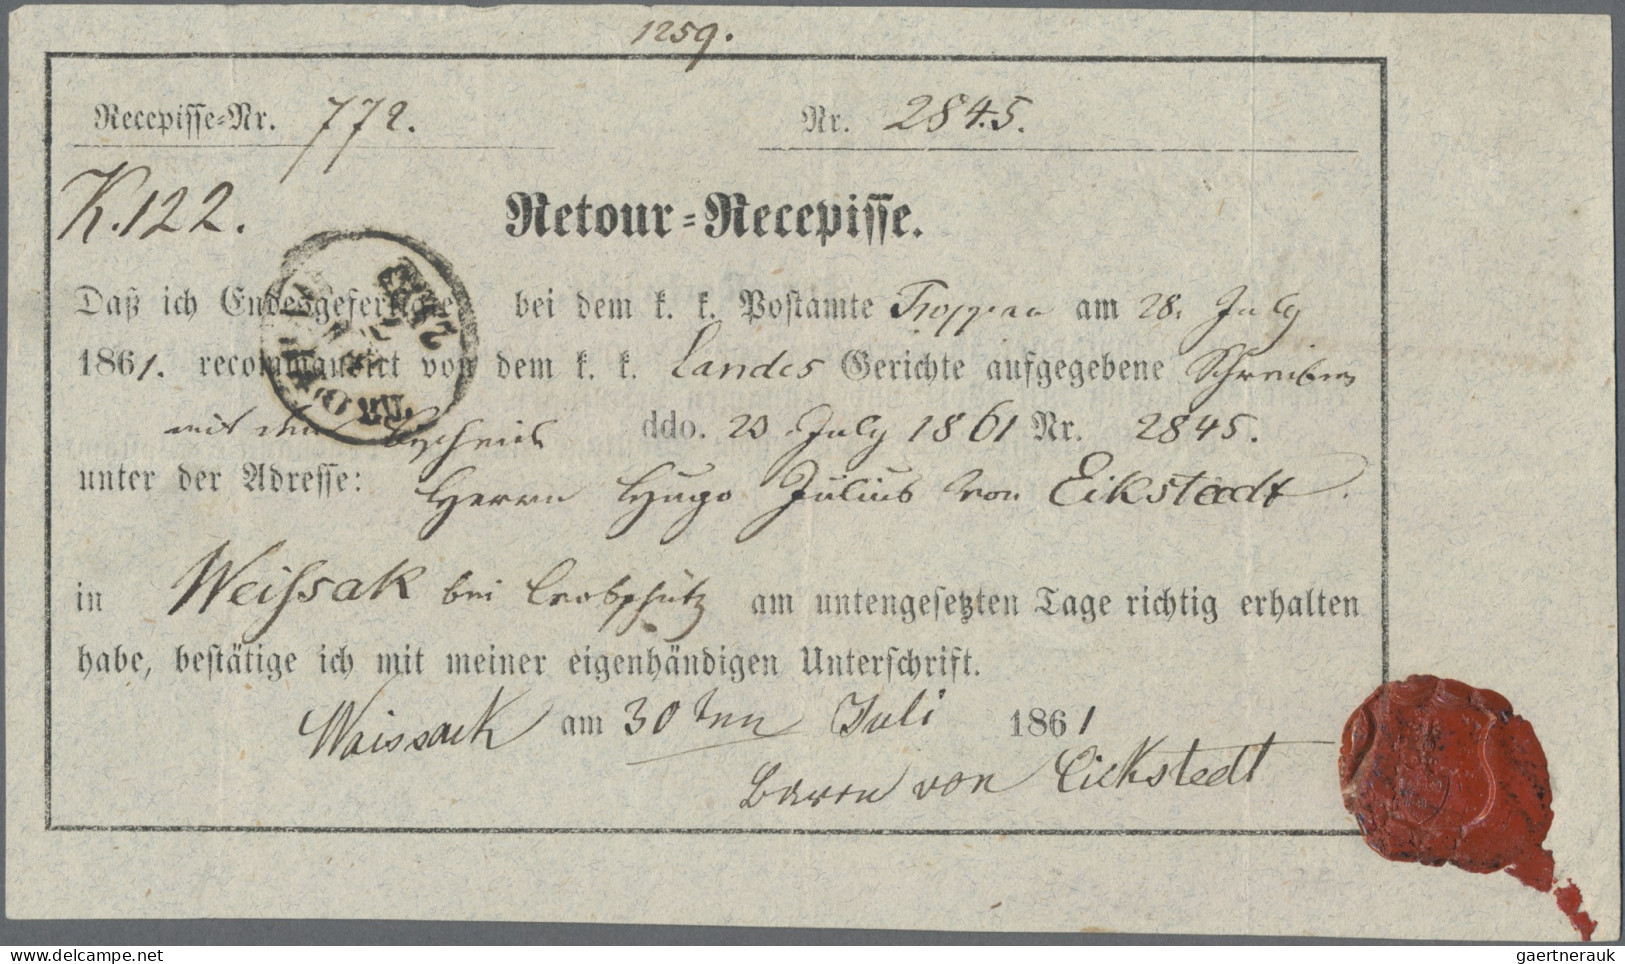 1259.
Recepisse-Nr. 772. Nr. 2845.
K.122.
Retour-Recepisse.
Daß ich Endesgefertigter bei dem k. k. Postamte Troppau am 28. July
1861. recommandirt von dem k. k. Landes Gerichte aufgegebene Schreiben
mit dem Bescheid ddo. 23 July 1861 Nr. 2845.
unter der Adresse: Herrn Hugo Julius von Eikstedt.
in Weißsak bei Leobschütz am untengesetzten Tage richtig erhalten
habe, bestätige ich mit meiner eigenhändigen Unterschrift.
Waissack am 30ten Juli 1861
Baron von Eickstedt
gaertnerauk